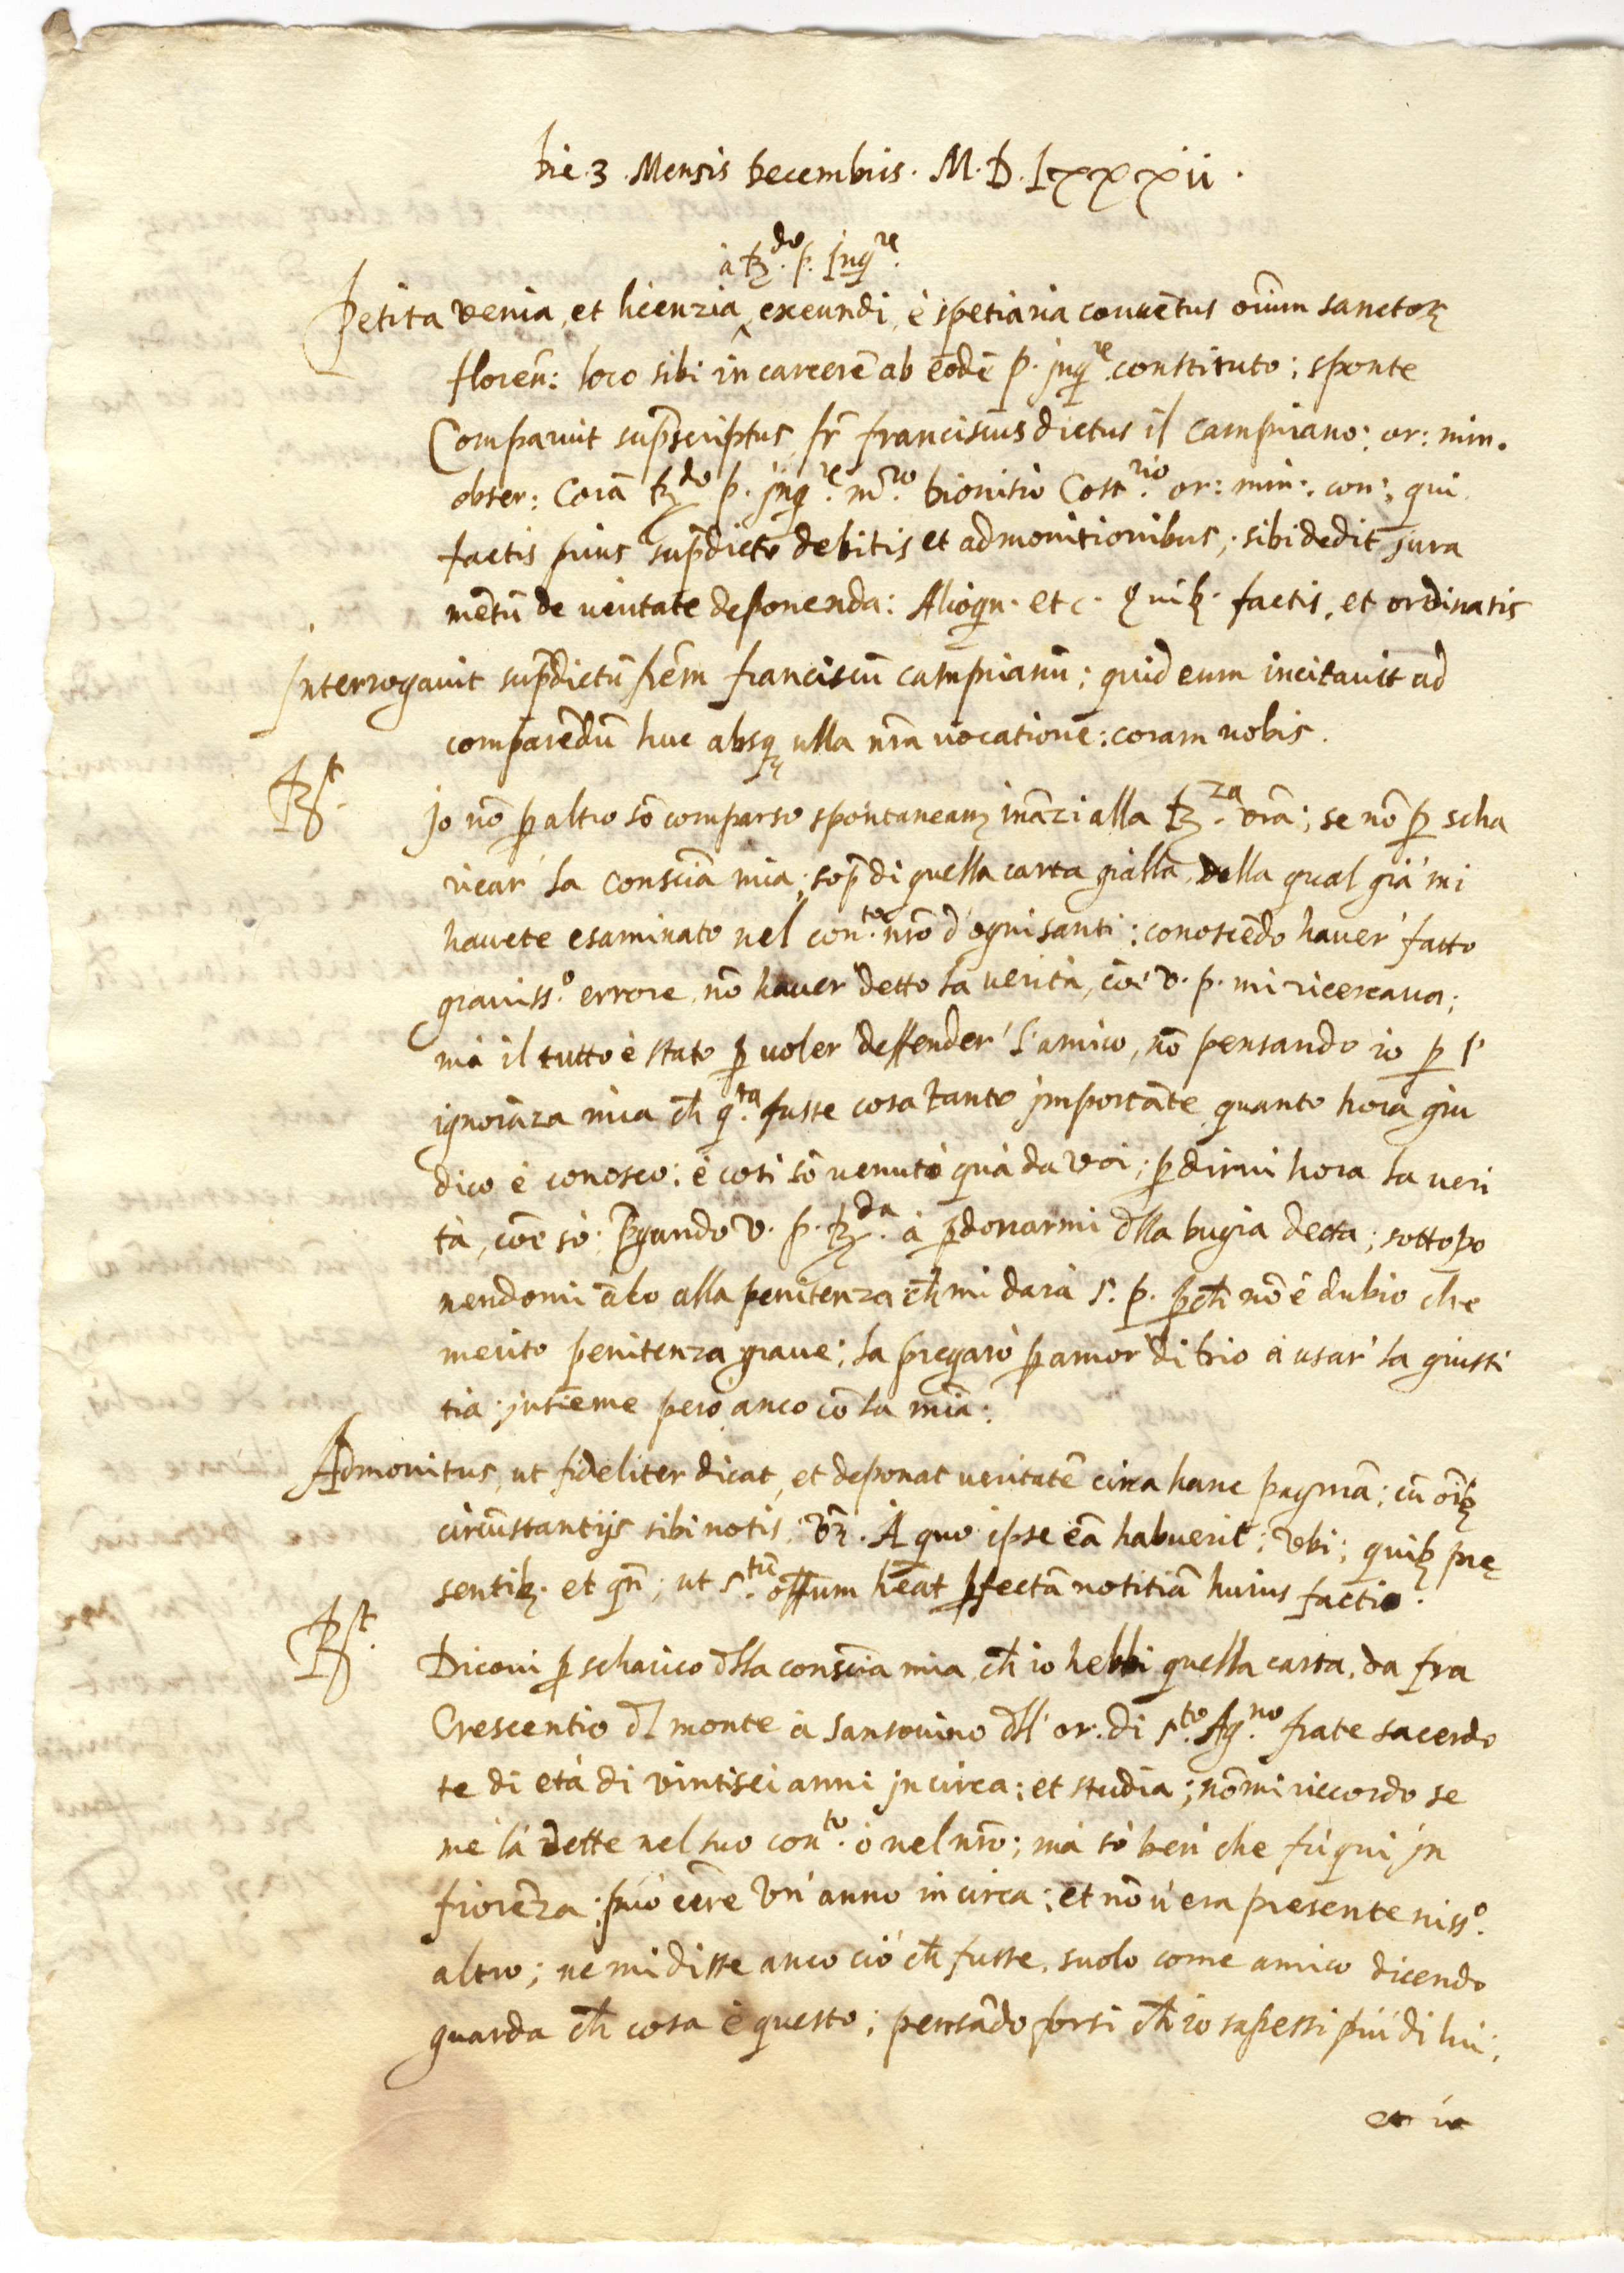 Die .3. Mensis Decembris. M.D.Lxxxxii.
à R.do p. Inq.re
Petita venia, et licenzia ^ exeundi, è spetiaria convētus oīum sanctoꝝ
florēn: loco sibi in carcerē ab eodē p. inq.re constituto; sponte
Comparuit sup̄scriptus fr̄ franciscus dictus il Campriano; or: min.
obser: Corā R.do p. inq.re m̄.ro Dionisio Cost.rio or: min:. con:, qui
factis prius sup̄dicto debitis et admonitionibus; sibi dedit jura
mētū de veritate deponenda: Alioqn. etc. Quibꝫ. factis, et ordinatis
Interrogavit sup̄dictū frēm franciscū camprianū; quid eum incitavit ad
comparēdū huc absqꝫ ulla nr̄a vocatione: coram nobis.
Rt.
Jo nō ꝑ altro sō comparso spōntaneamꝫ inā̄zi alla R.za vr̄a; se nō ꝑ scha
ricar' la consciā mia; sop̄ di quella carta gialla, della qual già mi
havete esaminato nel con.to nr̄o d'ognisanti; conoscēdo haver' fatto
graviss.o errore, nō haver detto la verità, cōe' v. p. mi ricercava;
mà il tutto è stato ꝑ voler deffender' l'amico, nō pensando io ꝑ l'
ignorāza mia ch̄ q.ta fusse cosa tanto importāte, quanto hora giu
dico è conosco; è cosi sō venuto quà da voi; ꝑ dirvi hora la veri
tà, cōe sò; p̄gando v. p. R.da à ꝑdonarmi dlla bugia detta; sottopo
nendomi āco alla penitenza ch̄ mi darà s. p. ꝑch̄ nō è dubio che
merito penitenza grave; la pregarò ꝑ amor' di Dio à usar' la giusti
tia insieme però anco cō la miā:
Admonitus, ut fideliter dicat, et deponat veritatē circa hanc paginā; cū oībꝫ
circūstantijs sibi notis; vꝫ. A quo ipse eā habuerit; vbi; quibꝫ pre
sentibꝫ. et qn̄; ut s.tū off̄um hēat ꝑfectā notitiā huius facti.
Rt.
Dicovi ꝑ scharico dlla consciā mia, ch̄ io hebbi quella carta, da fra
Crescentio dl monte à Sansovino dll'or. di s.to Ag.no frate sacerdo
te di età di vintisei anni in circa; et studia; nō mi riccordo se
me là dette nel suo con.to ò nel nr̄o; mà sò ben che fù qui in
fiorēza; può eēre vn' anno in circa; et nō v'era presente niss.o
altro; ne mi disse anco ciò ch̄ fusse, suolo come amico dicendo
guarda ch̄ cosa è questo; pensādo forsi ch̄ io sapessi più di lui;
et io